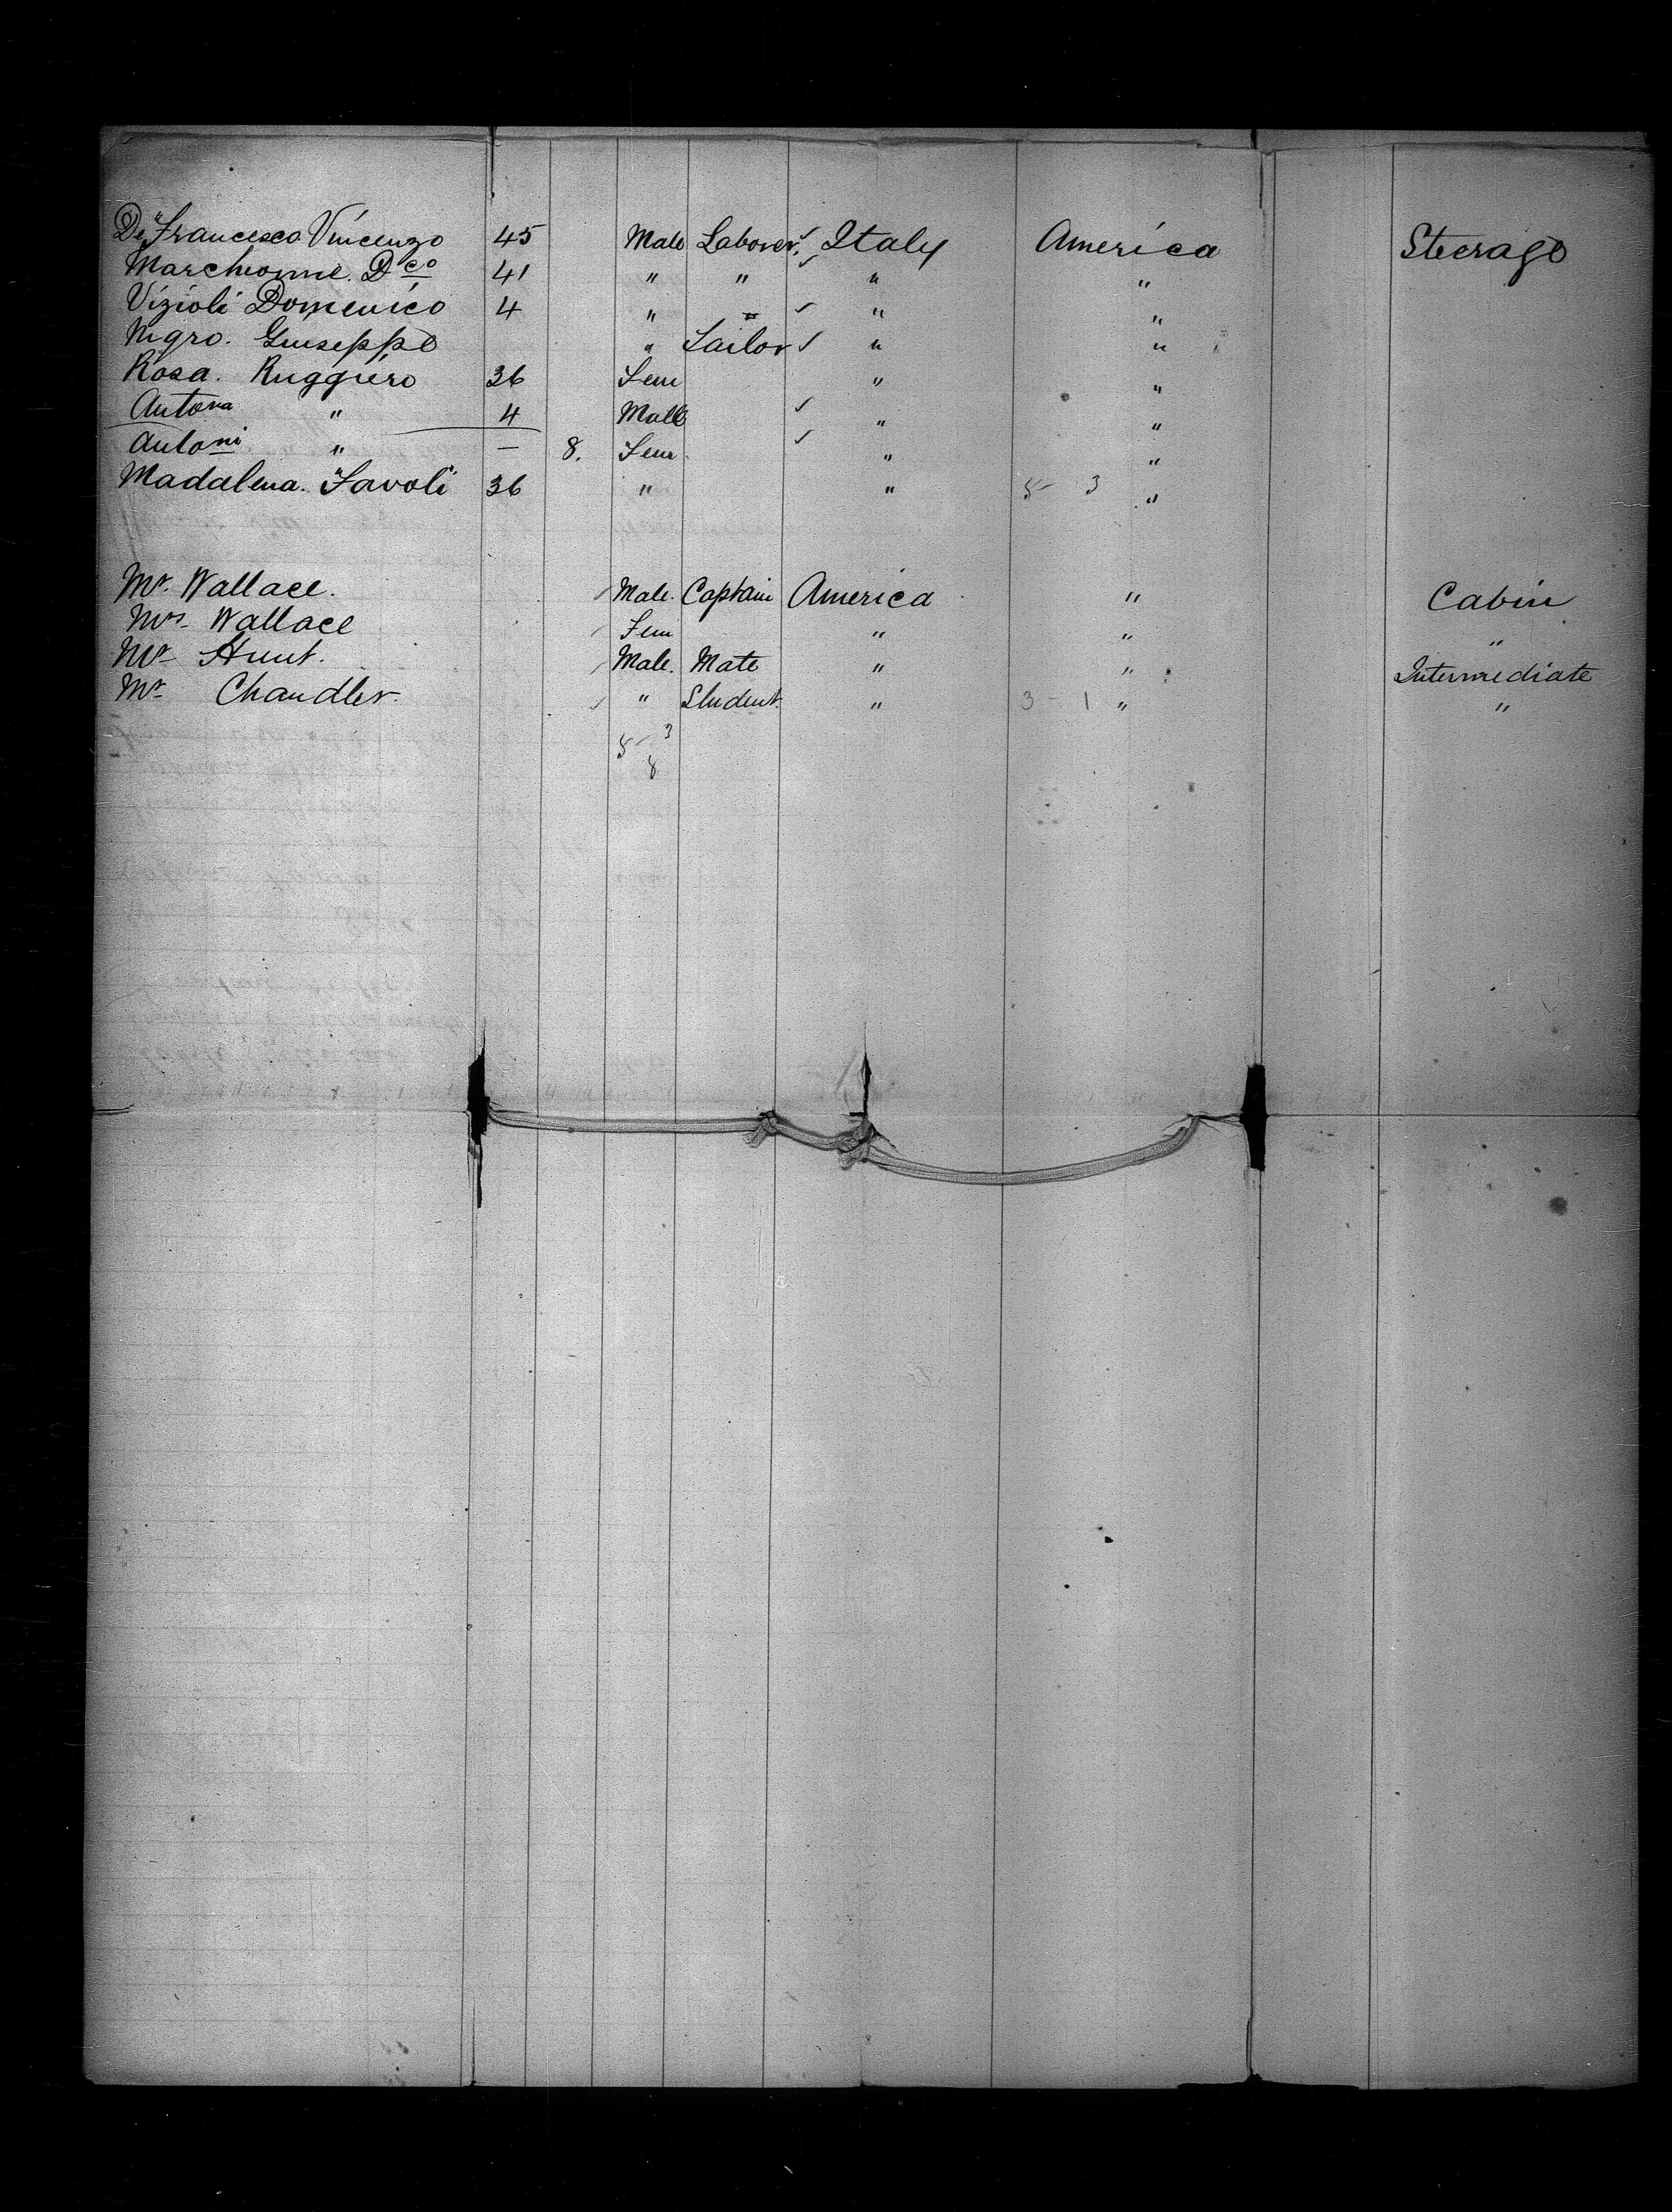 De Francesco Vincenzo 45 Male Laborer Italy America Steerage
Marchionne. Dco 41 " " " "
Vizioli Domenico 4 " " " "
Nigro. Giuseppe " Sailor " "
Rosa. Ruggiero 36 Fem " "
Antona " 4 Male " "
Antoni " — 8. Fem " "
Madalena. Favoli 36 " " 5 - 3 "
Mr. Wallace. Male. Captain America " Cabin
Mrs. Wallace Fem " " "
Mr Hunt. Male. Mate " " Intermediate
Mr Chandler. " Student. " 3 - 1 " "
5 - 3
8